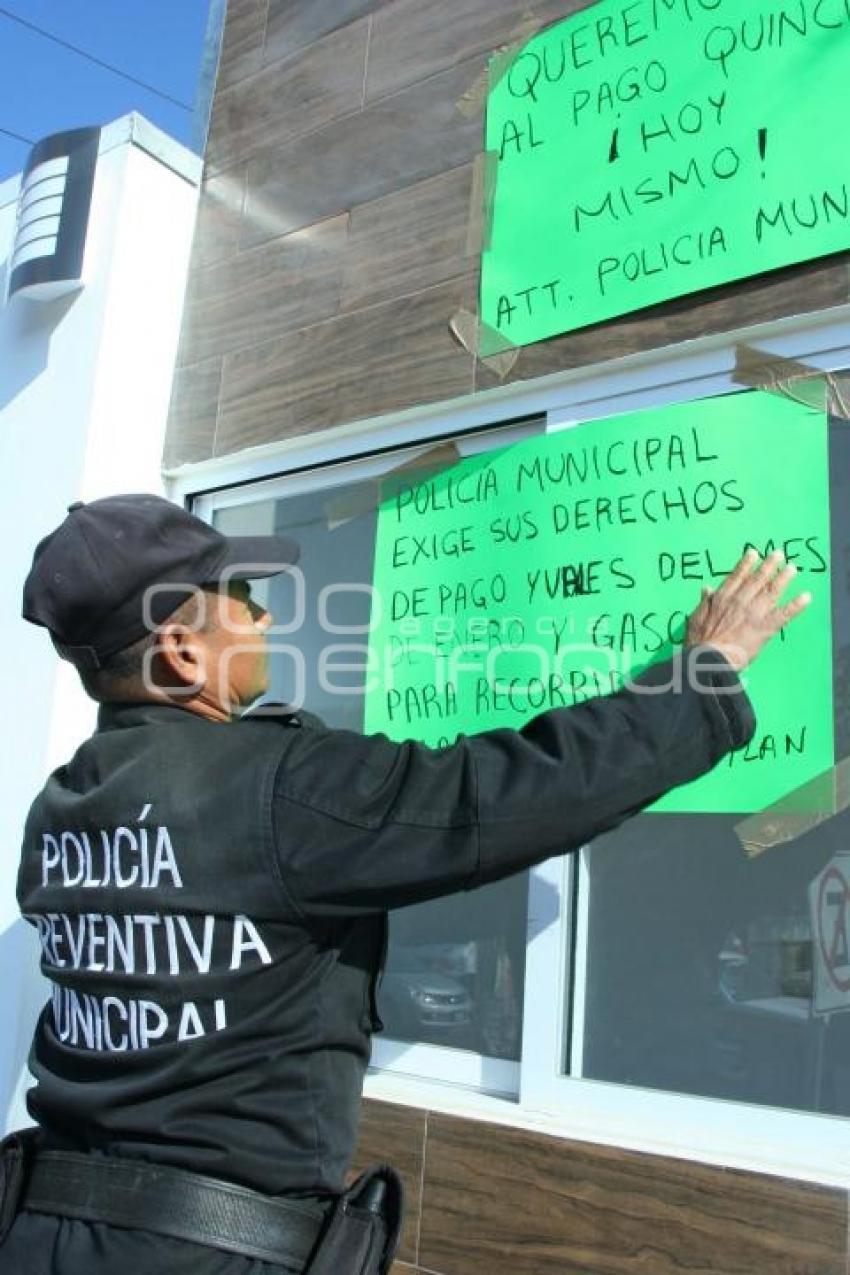 QUEREMO
AL PAGO QUINC
¡HOY
MISMO!
ATT. POLICIA MUN
POLICÍA MUNICIPAL
EXIGE SUS DERECHOS
DE PAGO Y VALES DEL MES
DE ENERO Y GASO
PARA RECORRI
LAN
agencia
enfoque
POLICÍA
REVENTIVA
MUNICIPAL